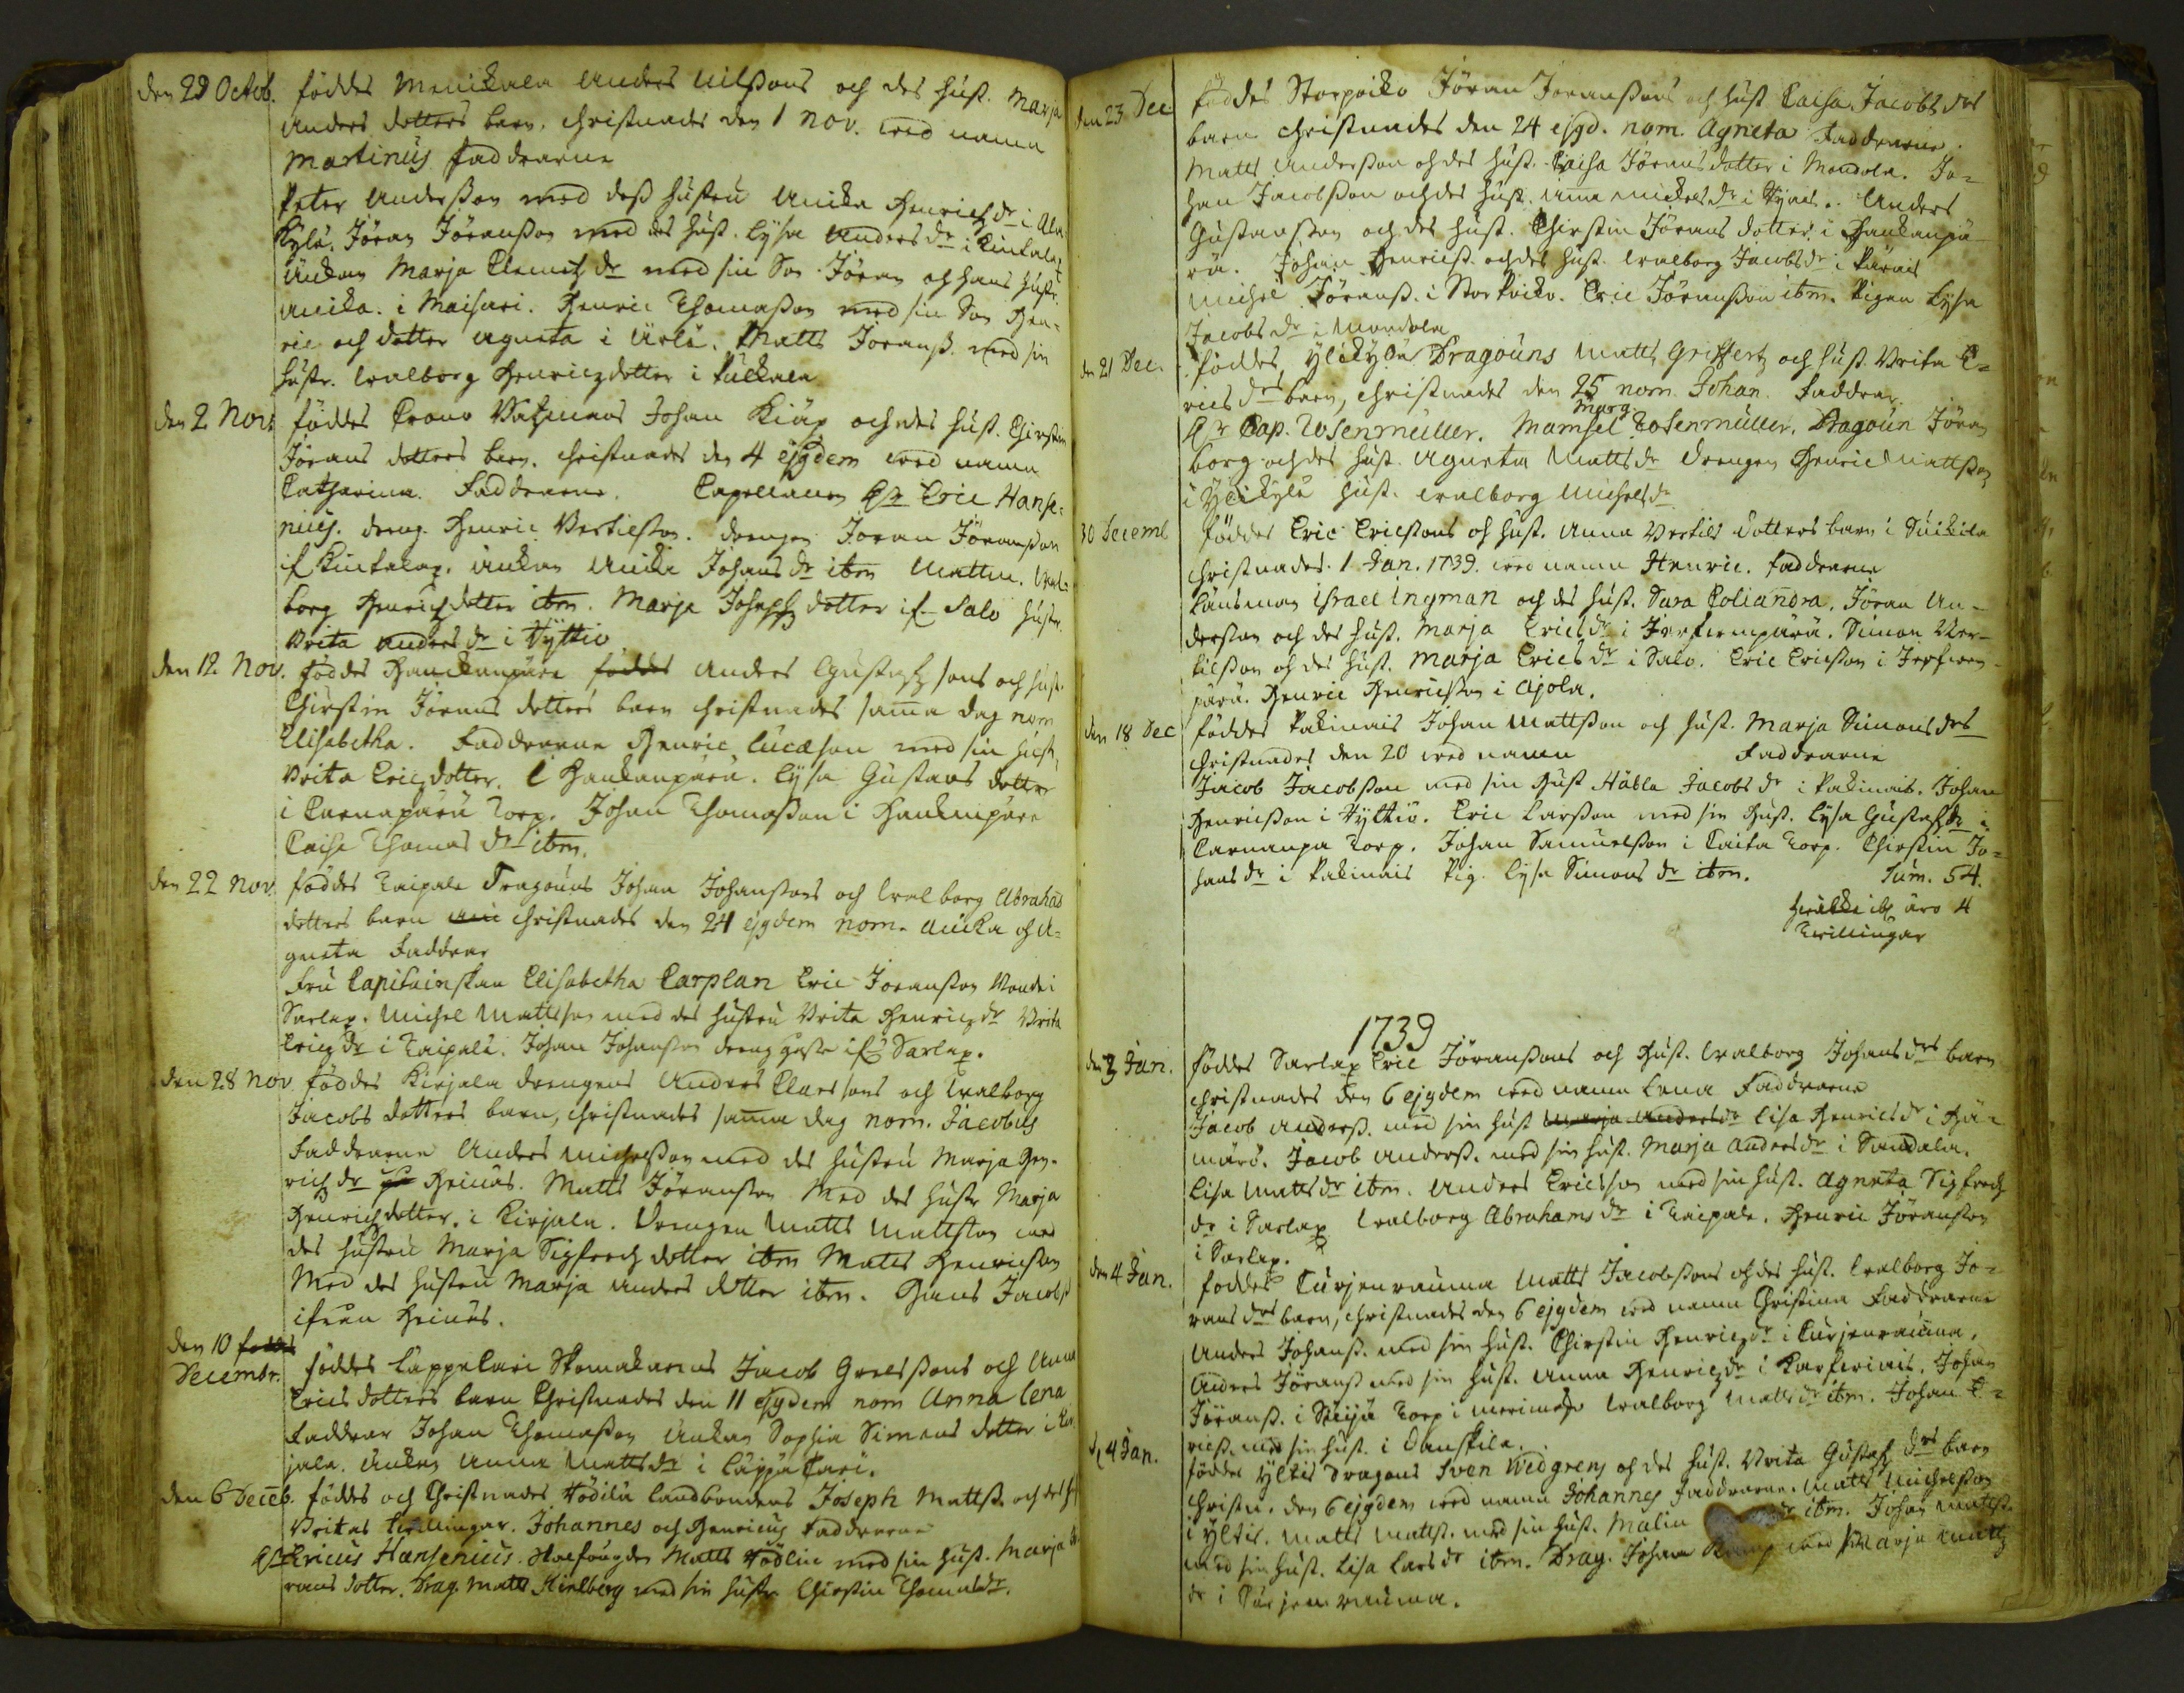 den 29 Octob. föddes Menikala Anders Nilssons och des hust. Marja
Anders dotters barn, christnades den 1 nov. wed namn
Martinus faddrarne
Peter Andersson med dess hustru Anika Henrichs dr i
Kylä. Jöran Jöransson med des hust. Lysa Anders dr i Kintala
Änkan Marja Clemetz dr med sin Son Jöran och hans hustr.
Anika i Maisari. Henric Thomasson med sin Son Hen-
ric och dotter Agneta i Ärlä. Matts Jöranss. med sin
hustr. Walborg Henricz dotter i Pukkala
den 2 Nov. föddes Crono Johan Kiäx och des hust. Chirstin
Jörans dotters barn. christnades den 4 ejusdem wed namn
Catharina. Faddrarne. Capellanen Hr Eric Hanse-
nius. dreng Henric Bertilsson. drengen Jöran Jöransson
if Kintalax. änkan Anika Johans dr ibm Wal-
borg Henrichz dotter ibm. Marja Josephs dotter if Salo hustr.
Brita Anders dr i Tyttiö
den 12 Nov. föddes Hankanpäre föddes Anders Gustafz sons och hust.
Chirstin Jörans dotters barn christnades samma dag nom
Elisabetha. Faddrarne Henric Lucæson med sin hust,
Brita Ericz dotter i Hankanpärä. Lysa Gustavs dotter
i Carnapärä Torp. Johan Thomasson i Hankanpäre
Caisa Thomas dr ibm.
den 22 Nov. föddes Taipale Dragouns Johan Johanssons och Walborg Abrahams
dotters barn christnades den 24 ejusdem nom. Anika och A-
gneta Faddrar
Fru Capitainskan Elisabetha Carplan Eric Jöransson
Sarlax. Michel Mattsson med des hustru Brita Henricz dr Brita
Ericz dr i Taipale. Johan Johansson dreng if Sarlax.
den 28 Nov föddes Kirjala drengens Anders Claessons och Walborg
Jacobs dotters barn, christnades samma dag nom. Jacobus
Faddrarne Anders Michelsson med des hustru Marja Hen-
richz dr Heinäs. Matts Jöransson Med des hustr Marja
Henrichz dotter. i Kirjala. Drengen Matts Mattsson med
des hustru Marja Sigfredz dotter ibm Matts Henricsson
Med des hustru Marja Anders dotter ibm. Hans Jacobss
ifrån Heinäs.
den 10 föddes
Decembr. föddes Lappelari Skomakarens Jacob Grelssons och Anna
Erics dotters barn Christnades den 11 ejusdem nom Anna Lena
Faddrar Johan Thomasson Änkan Sophia Simons dotter i
jala. Änkan Anna Matts dr i Lappelari.
den 6 Deceb. föddes och Christnades Hödilä landbondens Joseph Mattss. och des h
Britas Twillingar. Johannes och Henricus Faddrarne
Hr Ericus Hansenius. Matts Hödlin med sin hust. Marja
rans dotter. Drag. Matts Hielberg med sin hustr. Chirstin Thomas dr.
den 23 Dec föddes Storpoiko Jöran Jöranssons och hust Caisa Jacobs drs
barn christnades den 24 ejusd. nom. Agneta Faddrarne.
Matts Andersson och des hust. Caisa Jörans dotter i Mondola. Jo-
han Jacobsson och des hust. Anna Mickels dr i. Anders
Gustavsson och des hust. Chirstin Jörans dotter i Hankanpä-
rä. Johan Henricss. och des hust. Walborg Jacobs dr i Päräis
Michel Jöranss. i Storpoiko. Eric Jöransson ibm. Pigan Lysa
Jacobs dr i Mondola
den 21 Dec. föddes Ylikylä Dragouns Matts Griffert och hust. Brita E-
rics drs barn, christnades den 25 nom. Johan. Faddrar.
Hr Cap. Rosenmüller. Mamsel Marg. Rosenmüller. Dragoun Jöran
borg och des hust. Agneta Matts dr Drengen Henric Mattsson
i Ylikylä hust. Walborg Michels dr
30 Decemb föddes Eric Ericssons och hust. Anna Bertils dotters barn i Suikila
christnades 1 Jan. 1739. wed namn Henric. Faddrarne
Länsman Israel Ingman och des hust. Sara Poliandra. Jöran An-
dersson och des hust. Marja Erics dr i Jerfwenpärä. Simon Ber-
tilsson och des hust. Marja Erics dr i Salo. Eric Ericsson i Jerfwen-
pärä. Henric Henricsson i Ajola.
den 18 Dec föddes Pakinais Johan Mattsson och hust. Marja Simons drs
christnades den 20 wed namn Faddrarne
Jacob Jacobsson med sin hust Häbla Jacobs dr i Pakinais. Johan
Henricsson i Tyttiö. Eric Larsson med sin hust. Lysa Gustafz dr i
Carnanpä Torp. Johan Samuelsson i Taita Torp. Chirstin Jo-
hans dr i Pakinais Pig. Lysa Simons dr ibm. Sum. 54.
hwilka ibl. äro 4
Twillingar
1739
den 3 Jan. föddes Sarlax Eric Jöranssons och hust. Walborg Johans drs barn
christnades den 6 ejusdem wed namn Lena Faddrarne
Jacob Anderss. med sin hust Marja Anders dr Lisa Henrics dr i Hä-
märö. Jacob Anderss. med sin hust. Marja Anders dr i Sandala.
Lisa Matts dr ibm. Anders Ericsson med sin hust. Agneta Sigfredz
dr i Sarlax Walborg Abrahams dr i Taipale. Henric Jöransson
i Sarlax.
den 4 Jan. föddes Curjenrauma Matts Jacobssons och des hust. Walborg Jö-
rans drs barn, christnades den 6 ejusdem wed namn Christina Faddrarne
Anders Johanss. med sin hust. Chirstin Henricz dr i Curjenrauma.
Anders Jöranss med sin hust. Anna Henricz dr i Carferiais. Johan
Jöranss. i Torp i Merimasko Walborg Matts dr ibm. Johan E-
ricss. med sin hust. i Danskila.
d 4 Jan. föddes Yltis Dragons Sven Wedgrens och des hust. Brita Gustafz drs barn
christn. den 6 ejusdem wed namn Johannes Faddrarne. Matts Michelsson
i Yltis. Matts Mattss. med sin hust. Malin dr ibm. Johan Mattss.
med sin hust. Lisa Lars dr ibm. Drag. Johan med Marja Mattz
dr i Curjenrauma.